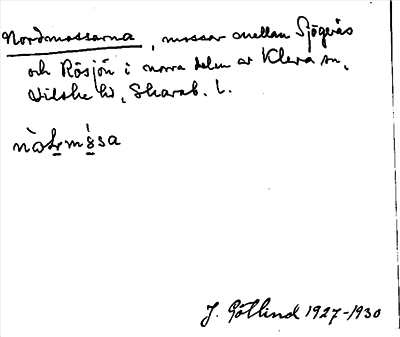 Nordmossarna, mossar mellan Sjögerås
och Rösjön i norra delen av Kleva sn,
Vilske hd, Skarab. l.
J. Götlind 1927-1930